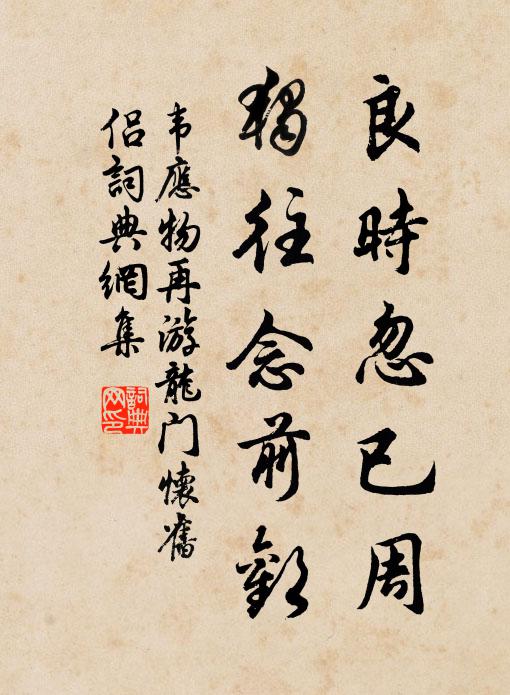 良時忽已周
獨往念前歡
韦應物再游龍门懷舊
侣詞典網集
詞典
网印